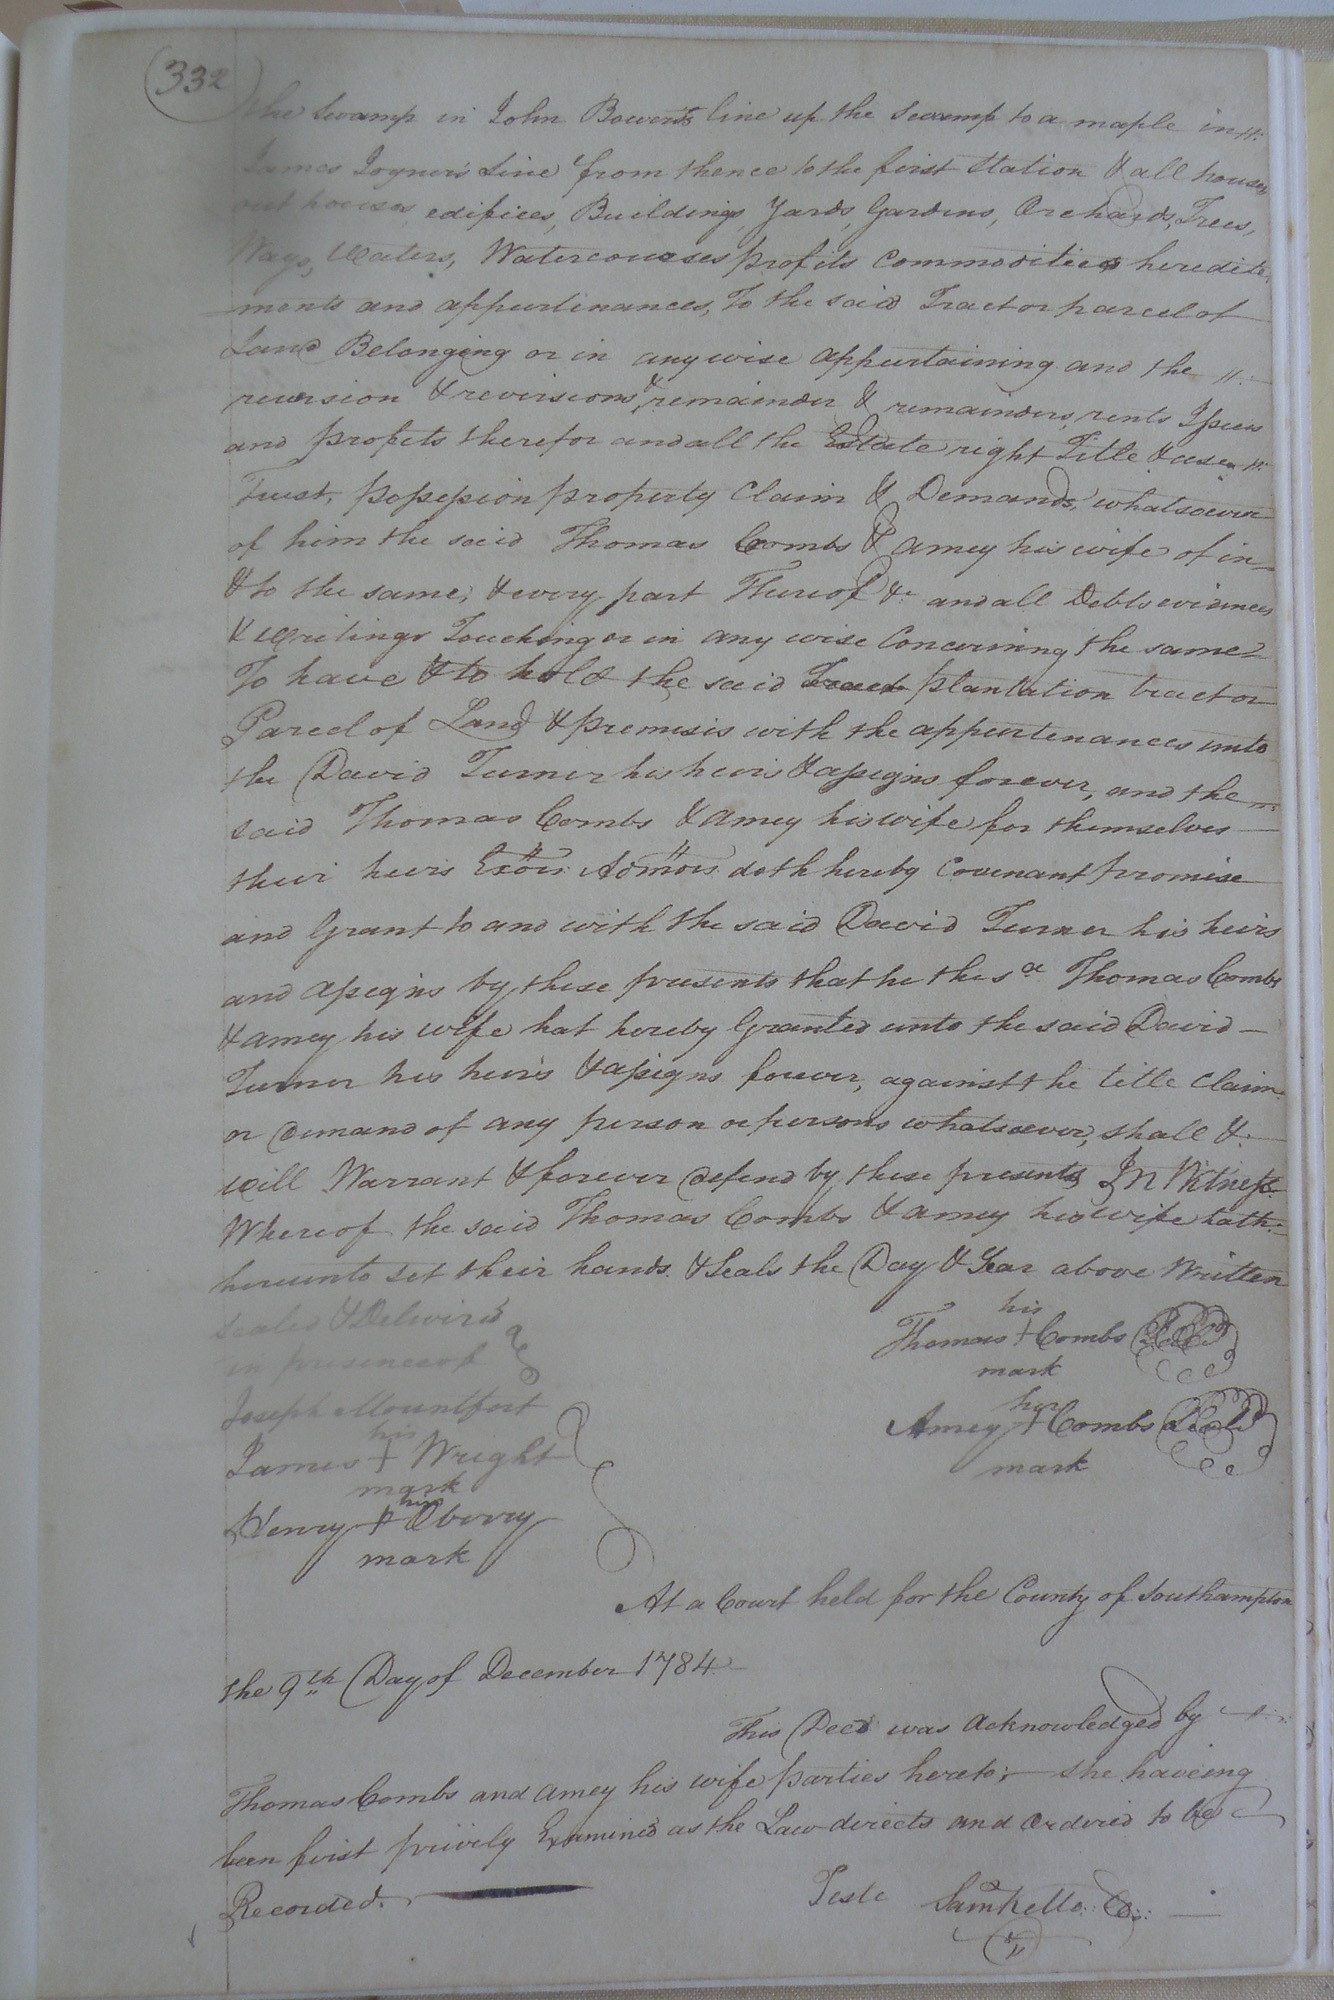 332
the Swamp in John Bowens line up the Swamp to a maple in
James Joyner's Line from thence to the first Station & all houses
out houses edifices, Buildings, Yards, Gardens, Orchards, Trees,
Ways, Waters, Watercourses profits Commodities heredite,
ments and appurtinances, To the said Tract or parcel of
Land Belonging or in any wise appurtaining and the
revirsion & revirsions, & remainder & remainders, rents Issues
and profits therefor and all the Estate right Title & use
Trust, possession property Claim & Demands, whatsoever
of him the said Thomas Combs & Amey his wife of in
& to the same, & every part Thereof &c and all Debts evidences
& writings Touching or in any wise Concerning the same
To have & to hold the said Tract plantation tract or
Parcel of Land & premises with the appurtenances unto
the David Turner his heirs & assigns forever, and the
said Thomas Combs & Amey his wife for themselves
their heirs Exors Admors doth hereby Covenant promise
and Grant to and with the said David Turner his heirs
and assigns by these presents that he the sd Thomas Combs
& Amey his wife hat hereby Granted unto the said David
Turner his heirs & assigns forever, against the title Claim
or Demand of any person or persons whatsoever, shall &
will Warrant & forever Defend by these presents In Witness
Whereof the said Thomas Combs & Amey his wife hath
hereunto set their hands & Seals the Day & Year above Written
Sealed & Deliver'd
in presence of
his
Thomas + Combs Seal
mark
Joseph Mountfort
her
Amey + Combs Seal
mark
his
James + Wright
mark
his
Henry + Oberry
mark
At a Court held for the County of Southampton
the 9th Day of December 1784
This Deed was Acknowledged by
Thomas Combs and Amey his wife parties hereto; she haveing
been first privily Examined as the Law directs and Ordered to be
Recorded.
Teste Saml Kello C